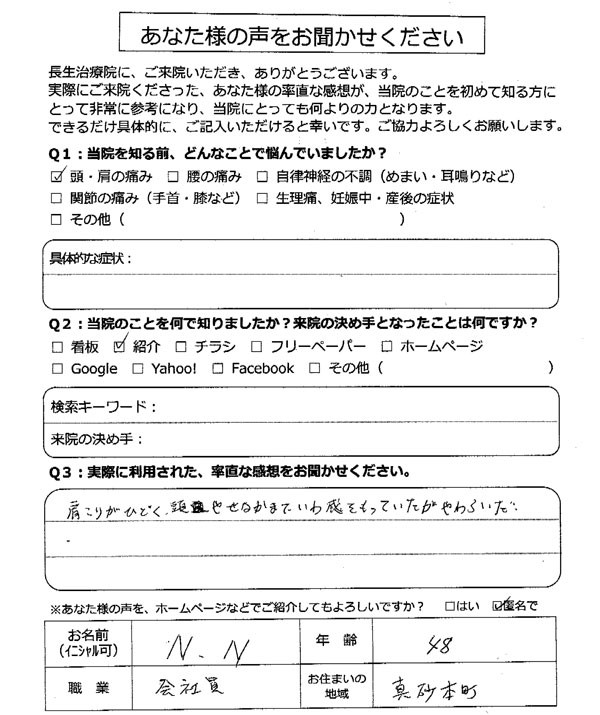 あなた様の声をお聞かせください
長生治療院に、ご来院いただき、ありがとうございます。
実際にご来院くださった、あなた様の率直な感想が、当院のことを初めて知る方に
とって非常に参考になり、当院にとっても何よりの力となります。
できるだけ具体的に、ご記入いただけると幸いです。ご協力よろしくお願いします。
Q1：当院を知る前、どんなことで悩んでいましたか？
☑ 頭・肩の痛み □ 腰の痛み □ 自律神経の不調（めまい・耳鳴りなど）
□ 関節の痛み（手首・膝など） □ 生理痛、妊娠中・産後の症状
□ その他（ ）
具体的な症状：
Q2：当院のことを何で知りましたか？来院の決め手となったことは何ですか？
□ 看板 ☑ 紹介 □ チラシ □ フリーペーパー □ ホームページ
□ Google □ Yahoo! □ Facebook □ その他（ ）
検索キーワード：
来院の決め手：
Q3：実際に利用された、率直な感想をお聞かせください。
肩こりがひどく、頭やせなかまでいわ感をもっていたがやわらいだ
※あなた様の声を、ホームページなどでご紹介してもよろしいですか？ □はい ☑匿名で
お名前 N．N 年 齢 48
（ｲﾆｼｬﾙ可）
職 業 会社員 お住まいの 真砂本町
地域